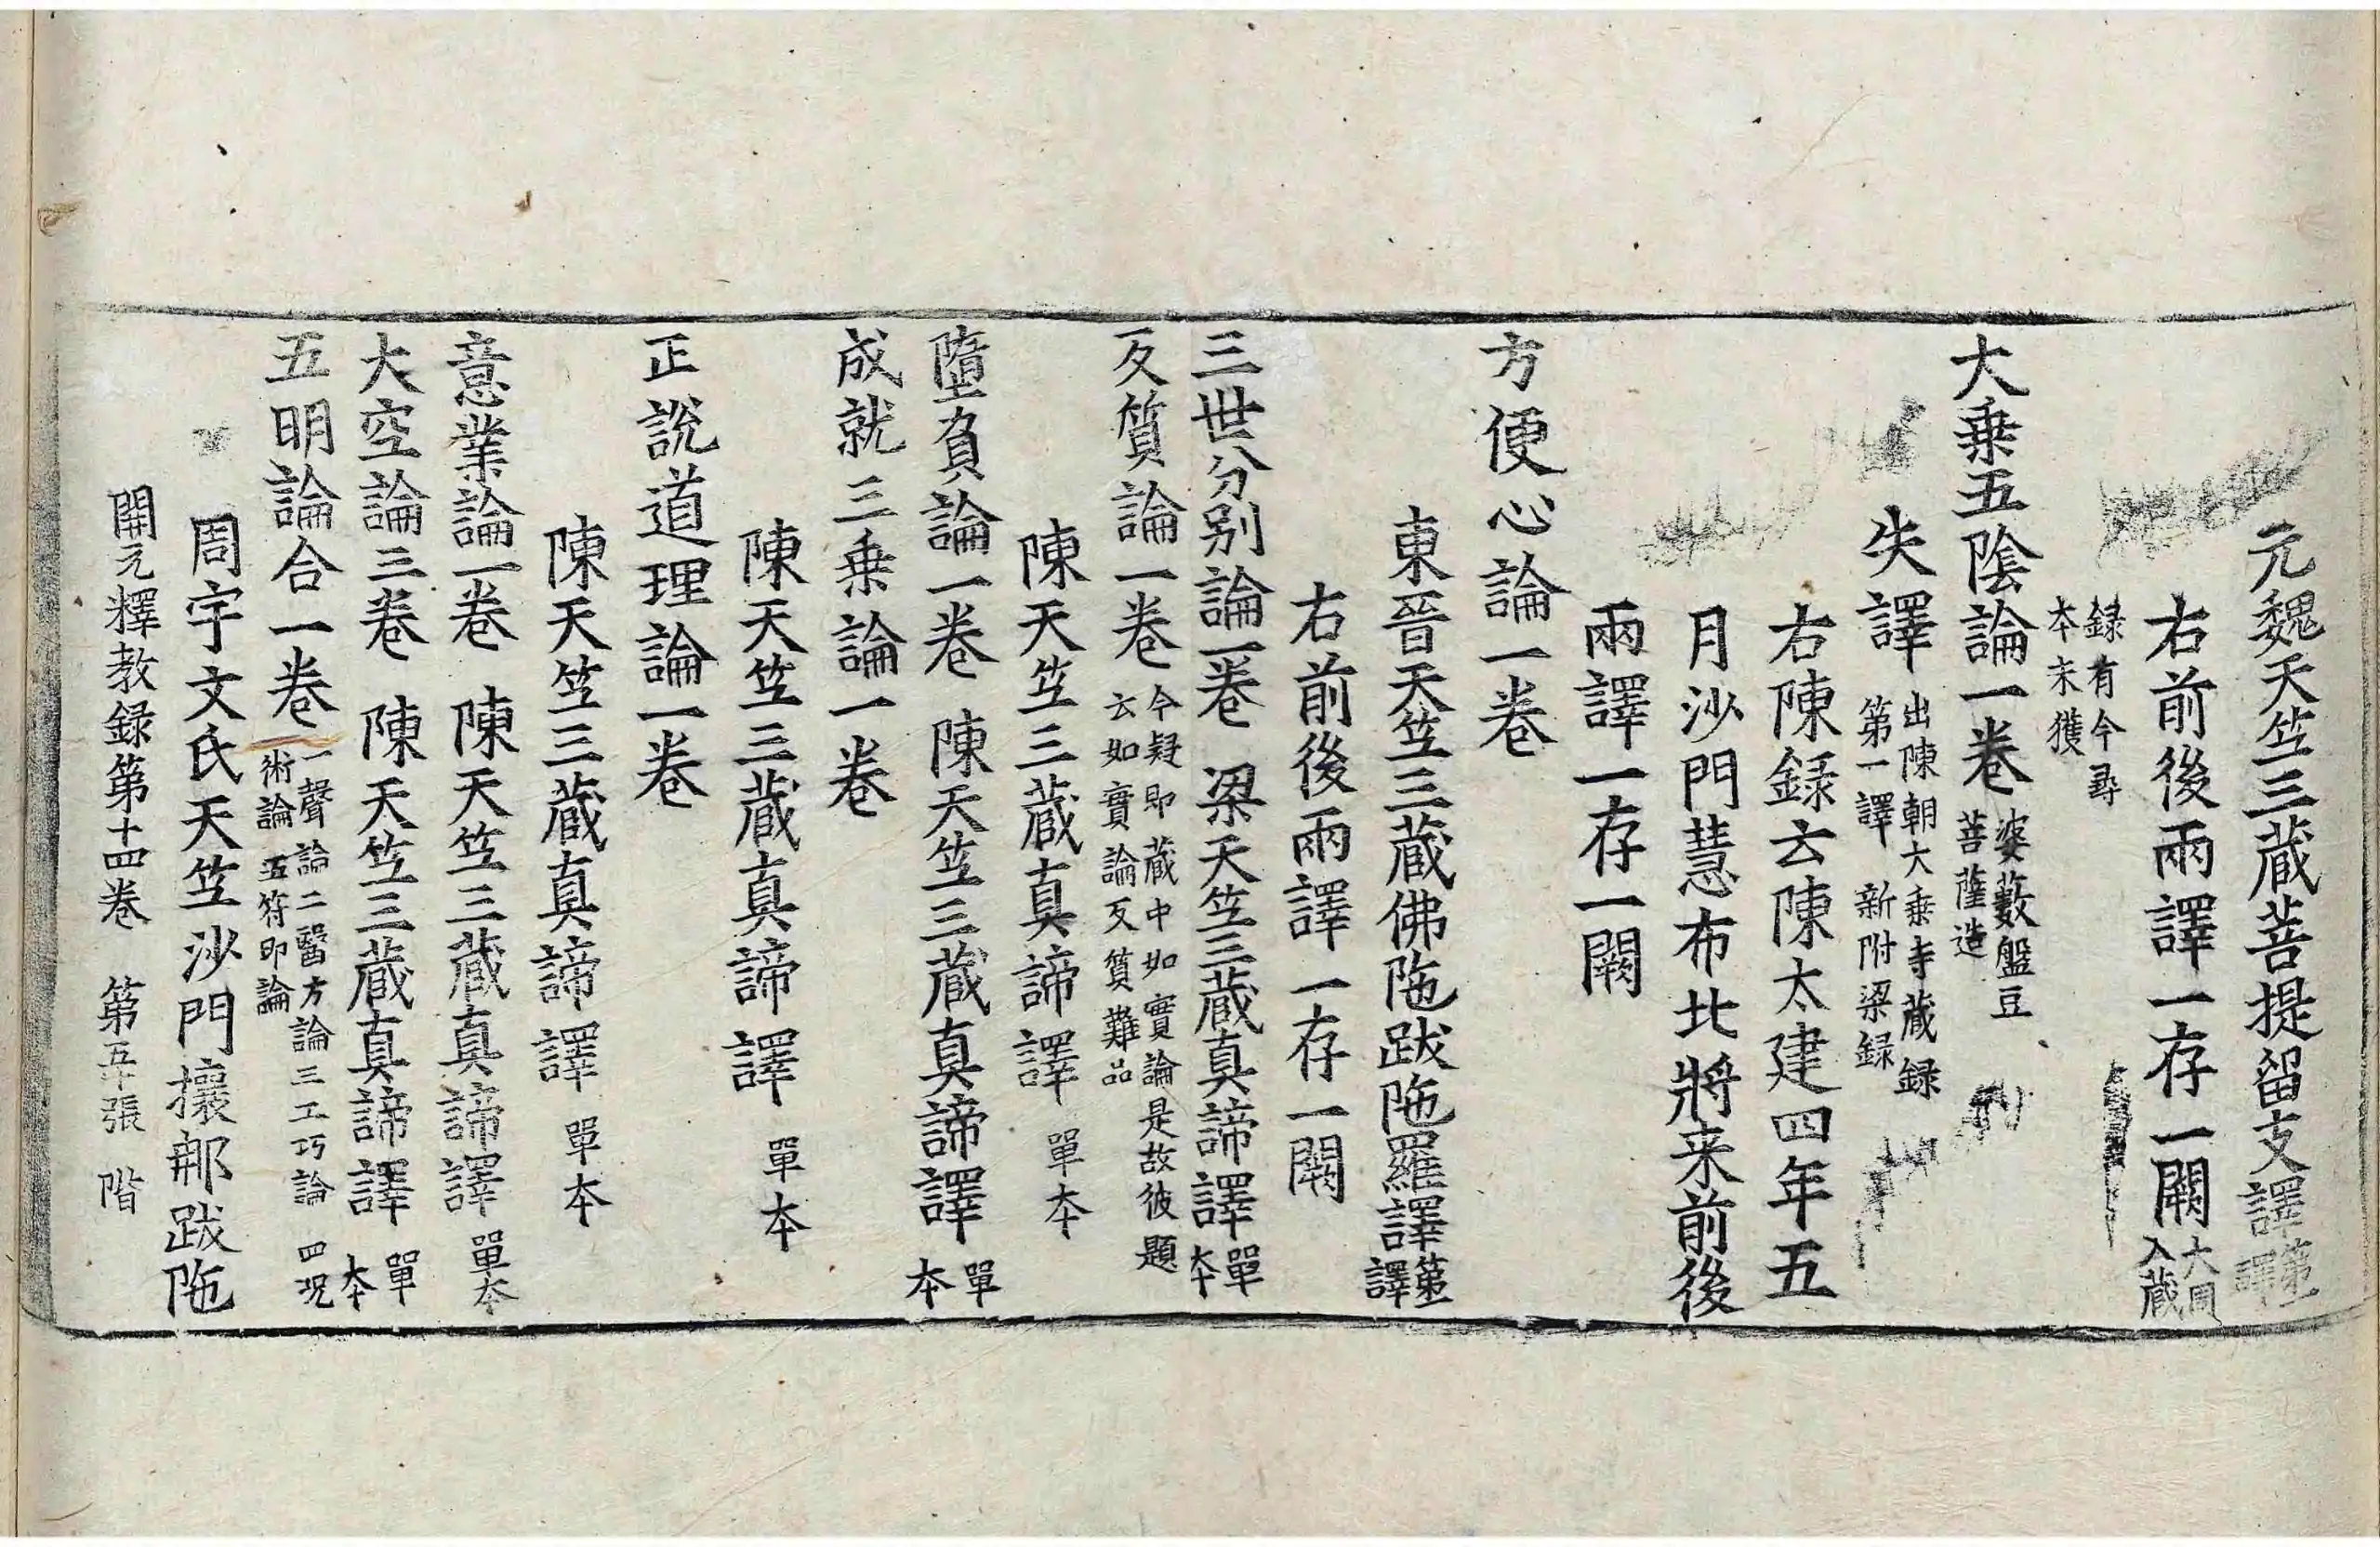 元魏天笁三蔵菩提留支譯第一譯
右前後兩譯一存一闕大周入蔵
録有今尋本未獲
大乗五隂論一卷婆藪盤豆菩薩造
失譯出陳朝大乗寺蔵録第一譯 新附梁録
右陳録云陳太建四年五
月沙門慧布北將来前後
兩譯一存一闕
方便心論一卷
東晉天笁三蔵佛陁跋陁羅譯第一譯
右前後兩譯一存一闕
三世分别論一卷 梁天笁三蔵真諦譯單本
反質論一卷今疑即蔵中如實論是故彼題云如實論反質難品
陳天笁三蔵真諦譯 單本
墮負論一卷 陳天笁三蔵真諦譯單本
成就三乗論一卷
陳天笁三蔵真諦譯 單本
正說道理論一卷
陳天笁三蔵真諦譯 單本
意業論一卷 陳天笁三蔵真諦譯單本
大空論三卷 陳天笁三蔵真諦譯單本
五明論合一卷一聲論二醫方論三工巧論四呪術論五符印論
周宇文氏天笁沙門攘那跋陁
開元釋教録第十四卷 第五張 階